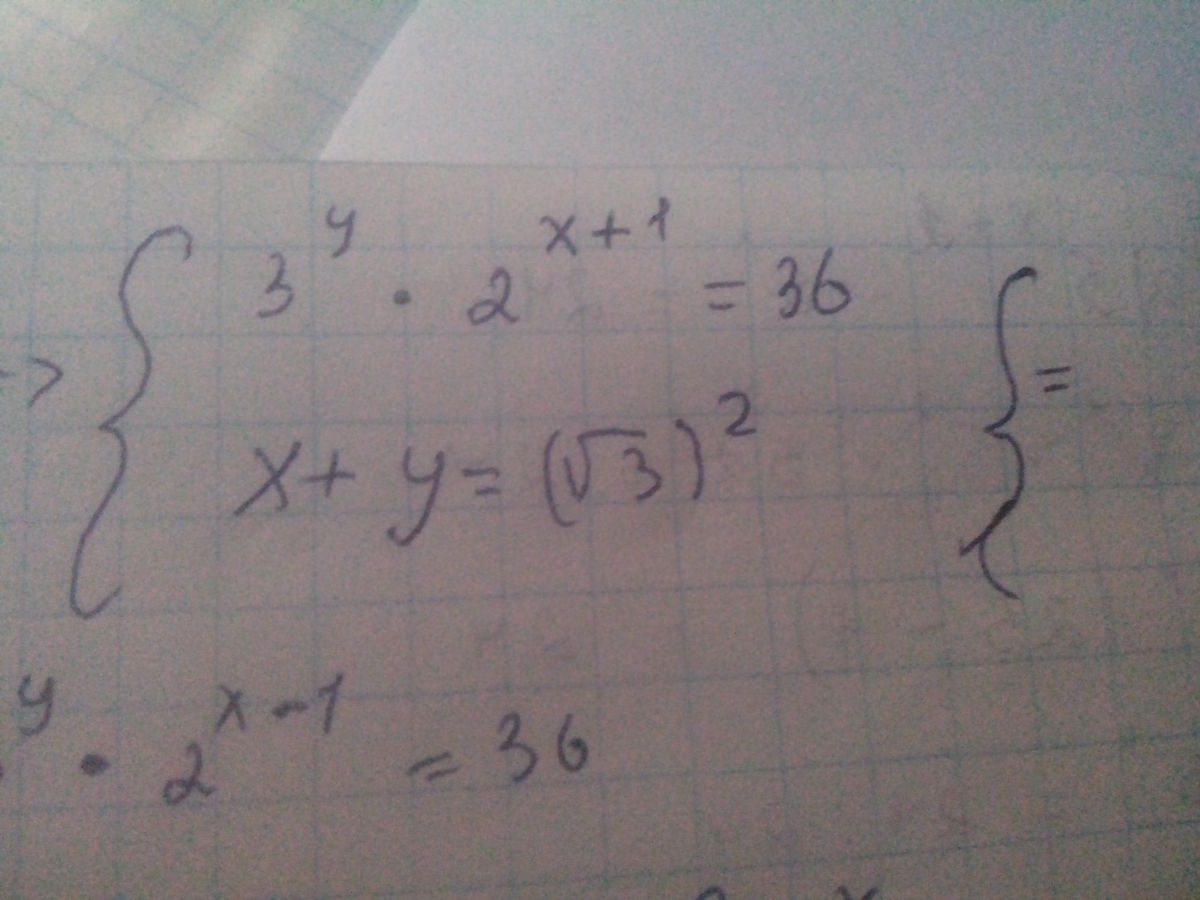 -> { 3^y · 2^(x+1) = 36 { =
x + y = (√3)^2
y · 2^(x-1) = 36